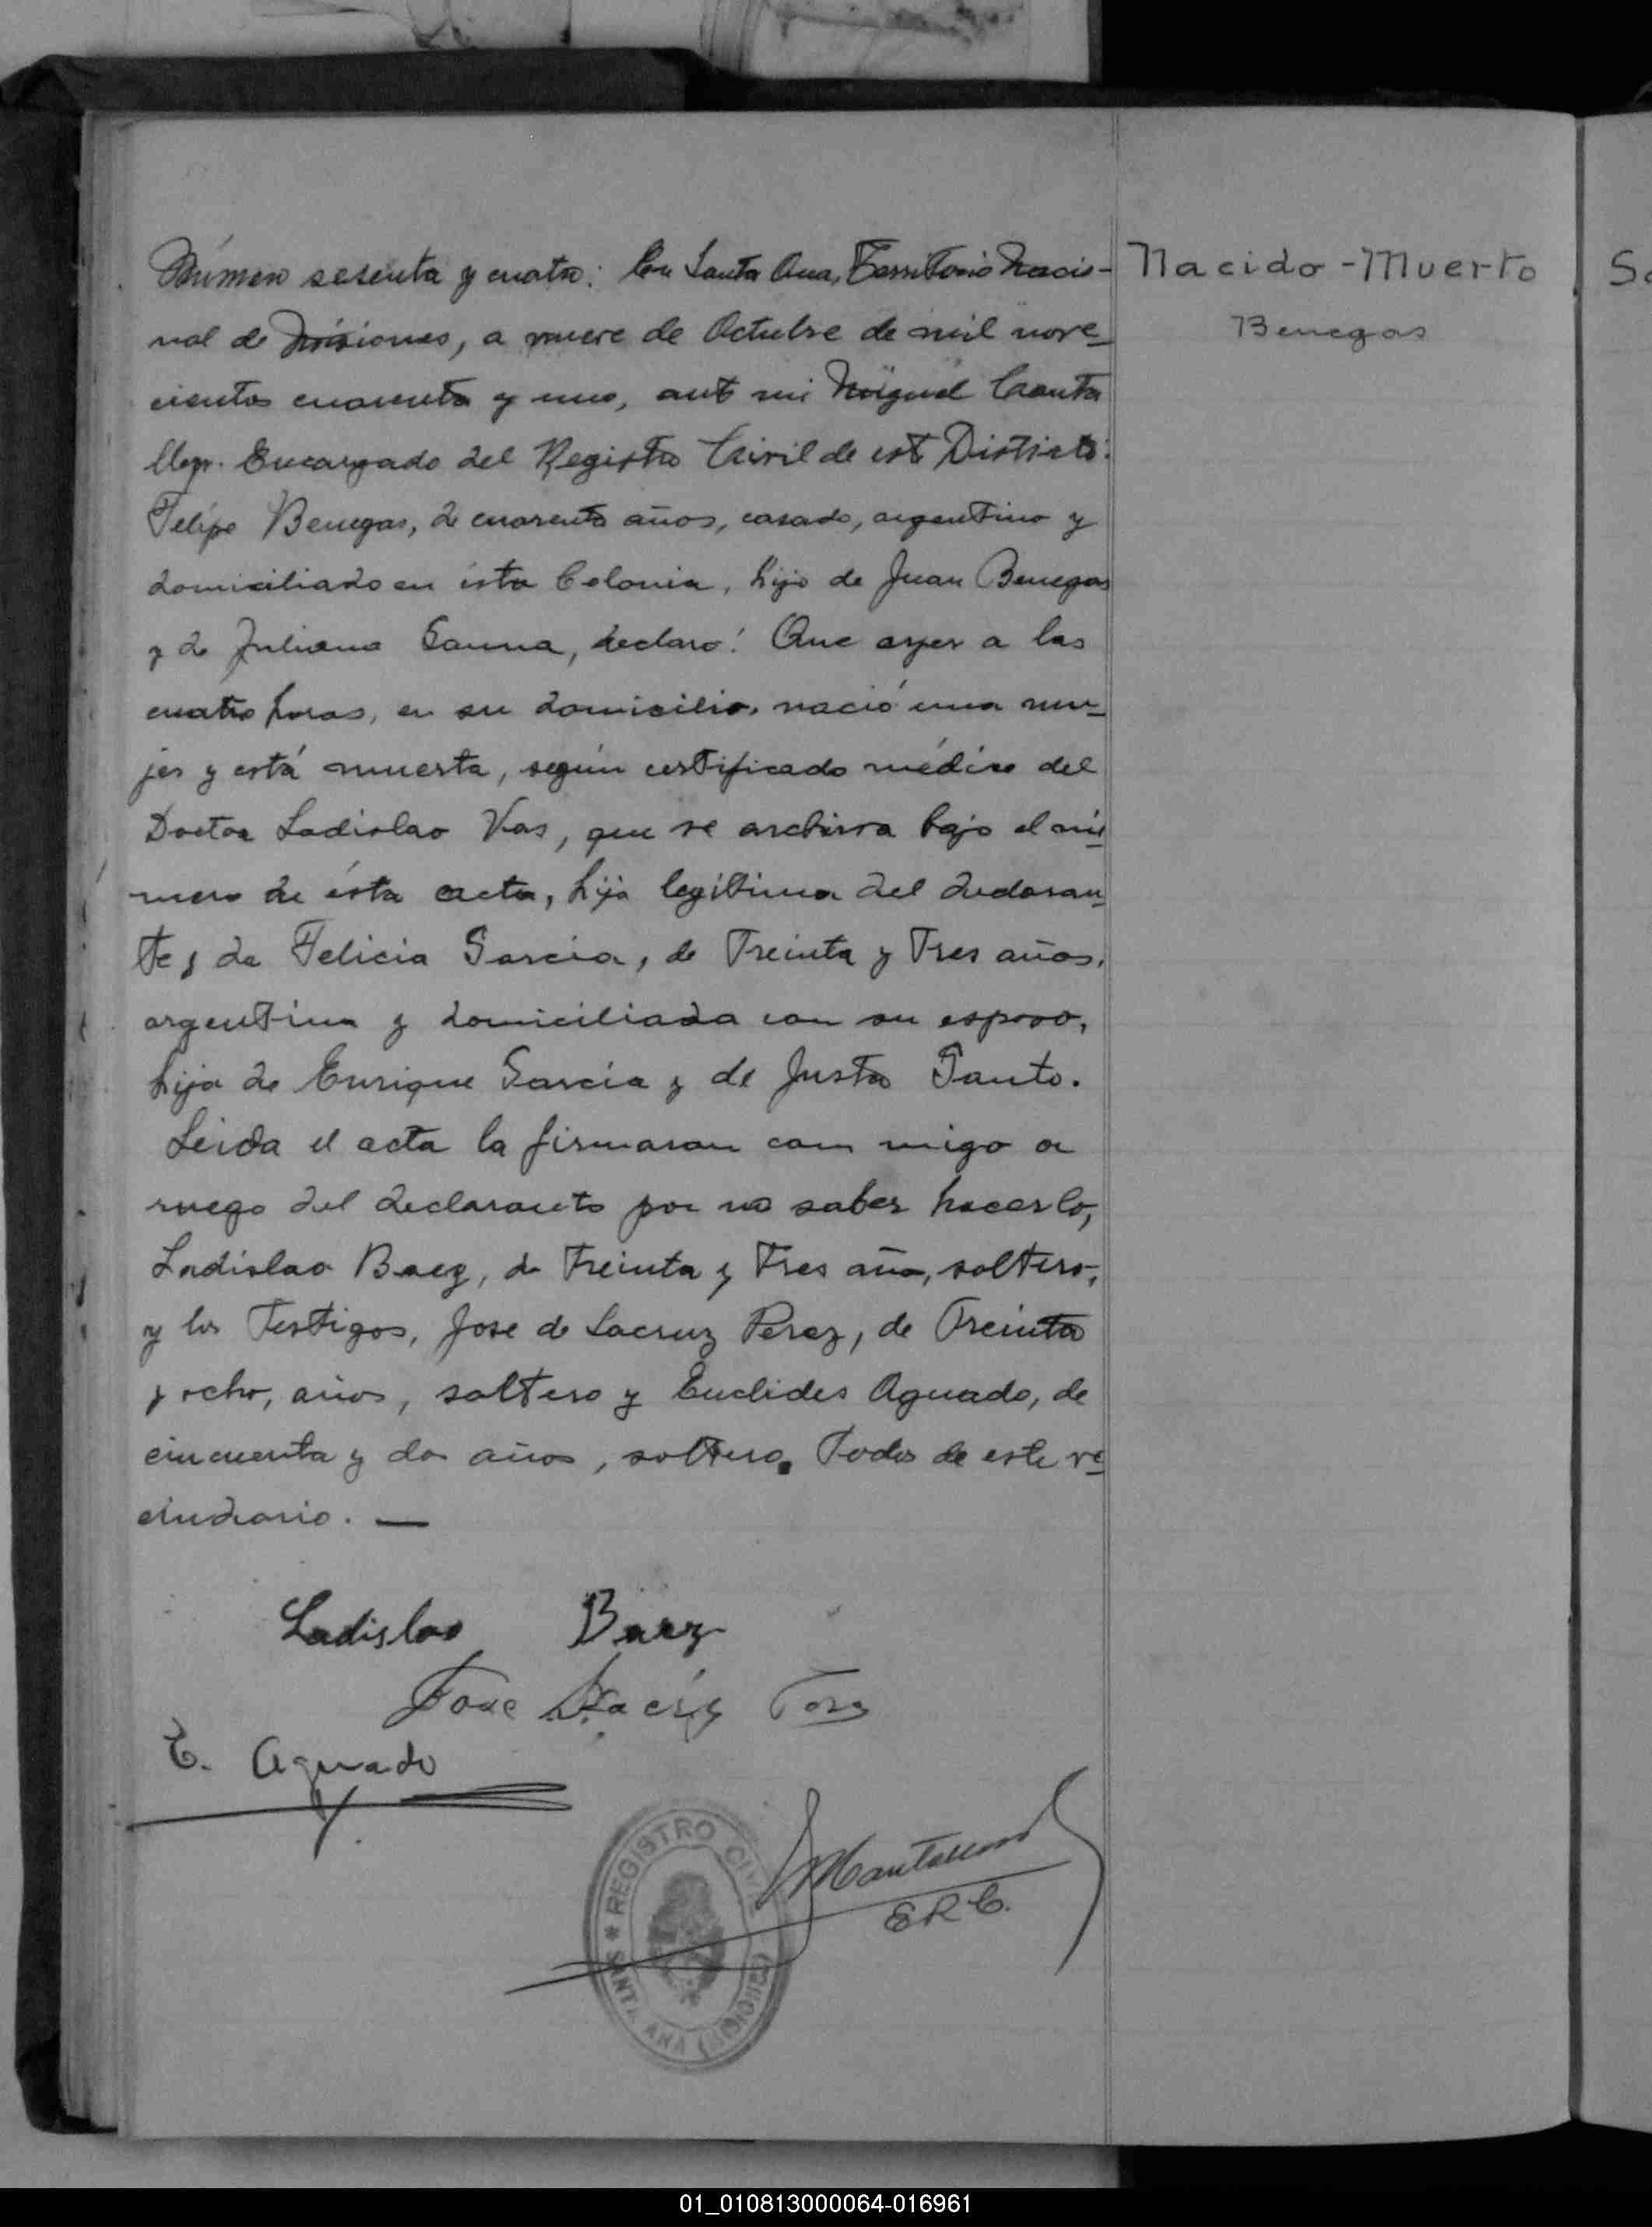 Número sesenta y cuatro: En Santa Ana, Territorio Nacio-
nal de Misiones, a nueve de Octubre de mil nove-
cientos cuarenta y uno, ante mi Miguel
Encargado del Registro Civil de este Distrito:
Felipe Benegas, de cuarenta años, casado, argentino y
domiciliado en ésta Colonia, hijo de Juan Benegas
y de Juliana Gauna, declaro: Que ayer a las
cuatro horas, en su domicilio, nació una mu-
jer y está muerta, según certificado médico del
Doctor Ladislao Vas, que se archiva bajo el nú-
mero de ésta acta, hija legítima del declaran-
te y de Felicia Garcia, de Treinta y Tres años,
argentina y domiciliada con su esposo,
hija de Enrique Garcia y de Justa
Leida el acta la firmaron con migo a
ruego del declarante por no saber hacerlo,
Ladislao Baez, de Treinta y Tres año, soltero,
y los Testigos, Jose de Lacruz Perez, de Treinta
y ocho, años, soltero y Euclides Aguado, de
cincuenta y dos años, soltero. Todos de este ve-
cindario. —
Ladislao Baez
Jose
E. Aguado
E R C.
REGISTRO CIVIL
SANTA ANA (MISIONES)
Nacido-Muerto
Benegas
01_010813000064-016961